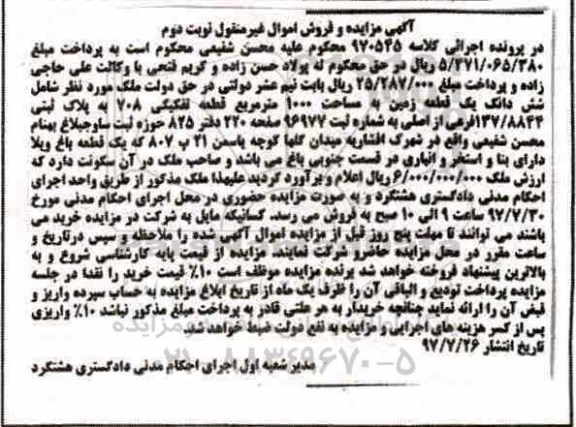 آگهی مزایده و فروش اموال غیرمنقول نوبت دوم
در پرونده اجرائی کلاسه ۹۷۰۵۴۵ محکوم علیه محسن شفیعی محکوم است به پرداخت مبلغ
۵/۲۷۱/۰۶۵/۳۸۰ ریال در حق محکوم له پولاد حسن زاده و کریم فتحی با وکالت علی حاجی
زاده و پرداخت مبلغ ۲۵/۲۸۷/۰۰۰ ریال بابت نیم عشر دولتی در حق دولت ملک مورد نظر شامل
شش دانگ یک قطعه زمین به مساحت ۱۰۰۰ مترمربع قطعه تفکیکی ۷۰۸ به پلاک ثبتی
۱۳۷/۸۸۴۴فرعی از اصلی به شماره ثبت ۹۶۹۷۷ صفحه ۲۲۰ دفتر ۸۲۵ حوزه ثبت ساوجبلاغ بهنام
محسن شفیعی واقع در شهرک افشاریه میدان گلها کوچه یاسمن ۲۱ پ ۸۰۷ که یک قطعه باغ ویلا
دارای بنا و استخر و انباری در قسمت جنوبی باغ می باشد و صاحب ملک در آن سکونت دارد که
ارزش ملک ۶/۰۰۰/۰۰۰/۰۰۰ ریال اعلام و برآورد گردید علیهذا ملک مذکور از طریق واحد اجرای
احکام مدنی دادگستری هشتگرد و به صورت مزایده حضوری در محل اجرای احکام مدنی مورخ
۹۷/۷/۳۰ ساعت ۹ الی ۱۰ صبح به فروش می رسد. کسانیکه مایل به شرکت در مزایده خرید می
باشند می توانند تا مهلت پنج روز قبل از مزایده اموال آگهی شده را ملاحظه و سپس درتاریخ و
ساعت مقرر در محل مزایده حاضرو شرکت نمایند. مزایده از قیمت پایه کارشناسی شروع و به
بالاترین پیشنهاد فروخته خواهد شد برنده مزایده موظف است ۱۰٪ قیمت خرید را نقدا در جلسه
مزایده پرداخت تودیع و الباقی آن را ظرف یک ماه از تاریخ ابلاغ مزایده به حساب سپرده واریز و
قبض آن را ارائه نماید چنانچه خریدار به هر علتی قادر به پرداخت مبلغ مذکور نباشد ۱۰٪ واریزی
پس از کسر هزینه های اجرایی و مزایده به نفع دولت ضبط خواهد شد.
تاریخ انتشار ۹۷/۷/۲۶
مدیر شعبه اول اجرای احکام مدنی دادگستری هشتگرد
۰۲۱-۸۸۳۴۹۶۷۰-۵